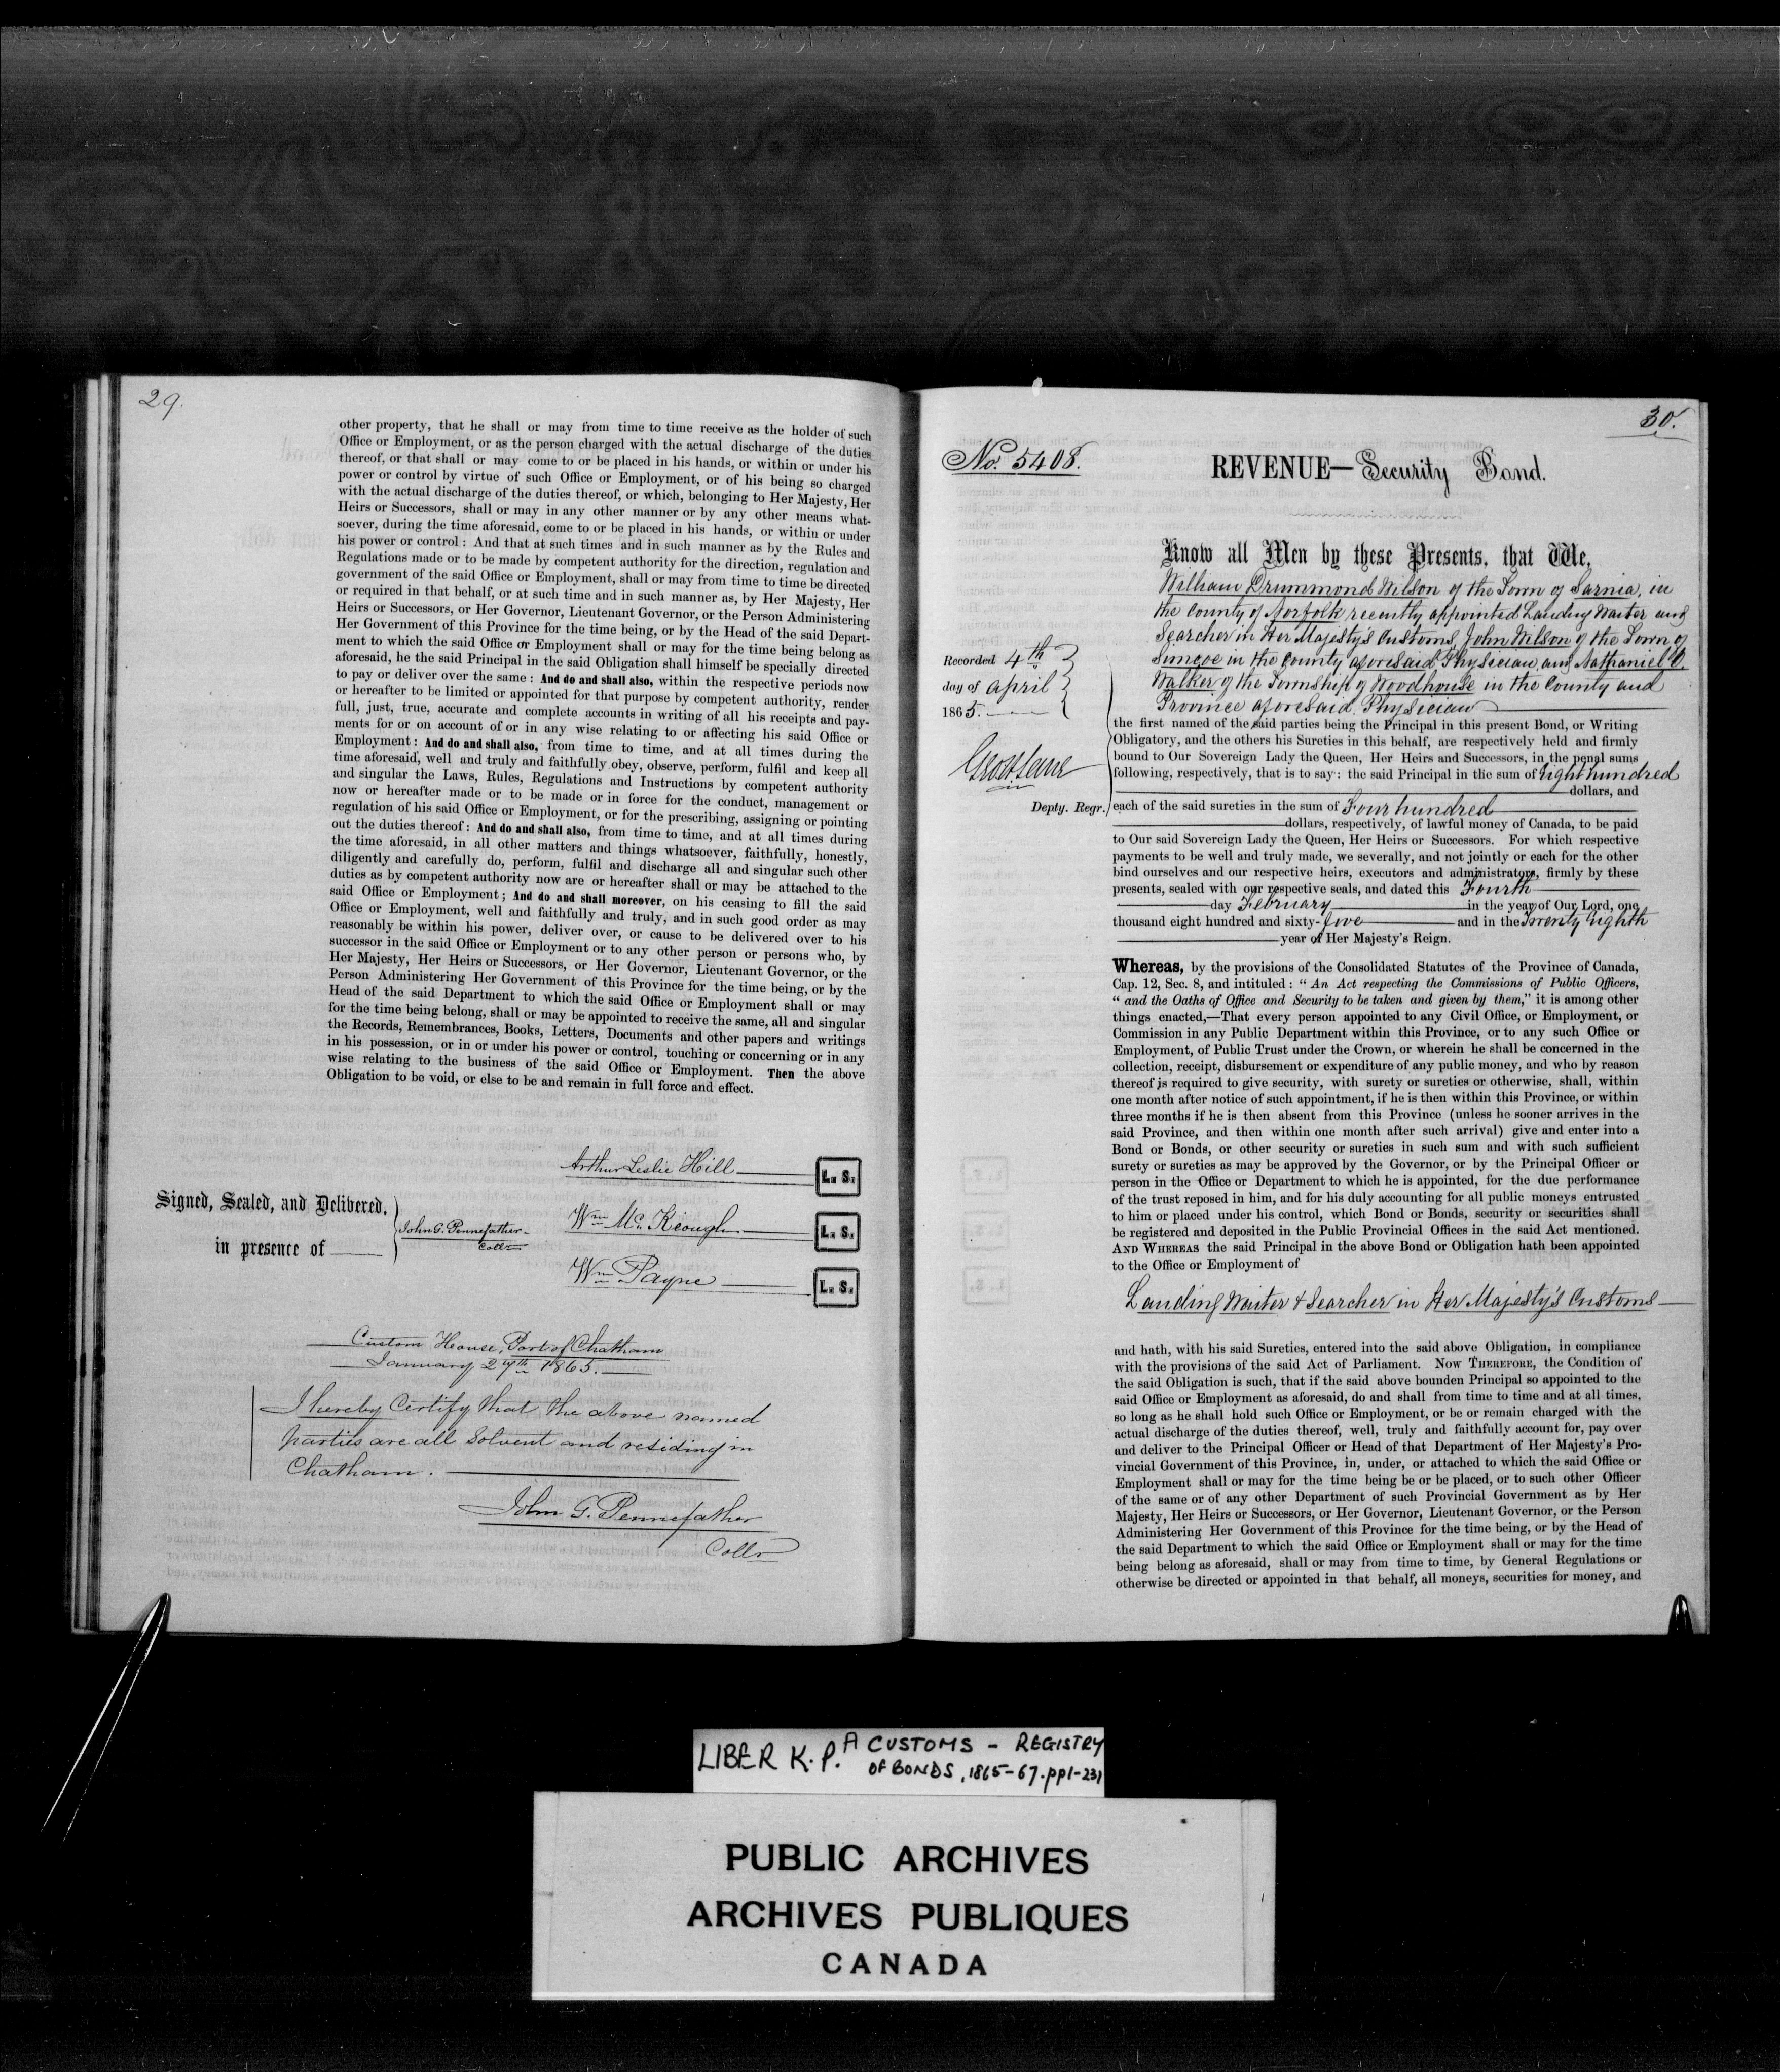 29.
other property, that he shall or may from time to time receive as the holder of such
Office or Employment, or as the person charged with the actual discharge of the duties
thereof, or that shall or may come to or be placed in his hands, or within or under his
power or control by virtue of such Office or Employment, or of his being so charged
with the actual discharge of the duties thereof, or which, belonging to Her Majesty, Her
Heirs or Successors, shall or may in any other manner or by any other means what-
soever, during the time aforesaid, come to or be placed in his hands, or within or under
his power or control: And that at such times and in such manner as by the Rules and
Regulations made or to be made by competent authority for the direction, regulation and
government of the said Office or Employment, shall or may from time to time be directed
or required in that behalf, or at such time and in such manner as, by Her Majesty, Her
Heirs or Successors, or Her Governor, Lieutenant Governor, or the Person Administering
Her Government of this Province for the time being, or by the Head of the said Depart-
ment to which the said Office or Employment shall or may for the time being belong as
aforesaid, he the said Principal in the said Obligation shall himself be specially directed
to pay or deliver over the same: And do and shall also, within the respective periods now
or hereafter to be limited or appointed for that purpose by competent authority, render
full, just, true, accurate and complete accounts in writing of all his receipts and pay-
ments for or on account of or in any wise relating to or affecting his said Office or
Employment: And do and shall also, from time to time, and at all times during the
time aforesaid, well and truly and faithfully obey, observe, perform, fulfil and keep all
and singular the Laws, Rules, Regulations and Instructions by competent authority
now or hereafter made or to be made or in force for the conduct, management or
regulation of his said Office or Employment, or for the prescribing, assigning or pointing
out the duties thereof: And do and shall also, from time to time, and at all times during
the time aforesaid, in all other matters and things whatsoever, faithfully, honestly,
diligently and carefully do, perform, fulfil and discharge all and singular such other
duties as by competent authority now are or hereafter shall or may be attached to the
said Office or Employment; And do and shall moreover, on his ceasing to fill the said
Office or Employment, well and faithfully and truly, and in such good order as may
reasonably be within his power, deliver over, or cause to be delivered over to his
successor in the said Office or Employment or to any other person or persons who, by
Her Majesty, Her Heirs or Successors, or Her Governor, Lieutenant Governor, or the
Person Administering Her Government of this Province for the time being, or by the
Head of the said Department to which the said Office or Employment shall or may
for the time being belong, shall or may be appointed to receive the same, all and singular
the Records, Remembrances, Books, Letters, Documents and other papers and writings
in his possession, or in or under his power or control, touching or concerning or in any
wise relating to the business of the said Office or Employment. Then the above
Obligation to be void, or else to be and remain in full force and effect.
Arthur Leslie Hill L. S.
Signed, Sealed, and Delivered,
in presence of
John G. Pennefather
Collr
Wm McKeough L. S.
Wm Payne L. S.
Custom House, Port of Chatham
January 27th 1865.
I hereby Certify that the above named
parties are all Solvent and residing in
Chatham.
John G. Pennefather
Collr
30.
No. 5408.
REVENUE—Security Bond.
Know all Men by these Presents, that We,
William Drummond Wilson of the Town of Sarnia, in
the County of Norfolk recently appointed Landing Waiter and
Searcher in Her Majesty's Customs, John Wilson of the Town of
Simcoe in the County aforesaid, Physician, and Nathaniel O.
Walker of the Township of Woodhouse in the County and
Province aforesaid, Physician
Recorded 4th
day of April
1865.
Depty. Regr.
the first named of the said parties being the Principal in this present Bond, or Writing
Obligatory, and the others his Sureties in this behalf, are respectively held and firmly
bound to Our Sovereign Lady the Queen, Her Heirs and Successors, in the penal sums
following, respectively, that is to say: the said Principal in the sum of Eight hundred
dollars, and
each of the said sureties in the sum of Four hundred
dollars, respectively, of lawful money of Canada, to be paid
to Our said Sovereign Lady the Queen, Her Heirs or Successors. For which respective
payments to be well and truly made, we severally, and not jointly or each for the other
bind ourselves and our respective heirs, executors and administrators, firmly by these
presents, sealed with our respective seals, and dated this Fourth
day February in the year of Our Lord, one
thousand eight hundred and sixty-five and in the Twenty Eighth
year of Her Majesty's Reign.
Whereas, by the provisions of the Consolidated Statutes of the Province of Canada,
Cap. 12, Sec. 8, and intituled: "An Act respecting the Commissions of Public Officers,
"and the Oaths of Office and Security to be taken and given by them," it is among other
things enacted,—That every person appointed to any Civil Office, or Employment, or
Commission in any Public Department within this Province, or to any such Office or
Employment, of Public Trust under the Crown, or wherein he shall be concerned in the
collection, receipt, disbursement or expenditure of any public money, and who by reason
thereof is required to give security, with surety or sureties or otherwise, shall, within
one month after notice of such appointment, if he is then within this Province, or within
three months if he is then absent from this Province (unless he sooner arrives in the
said Province, and then within one month after such arrival) give and enter into a
Bond or Bonds, or other security or sureties in such sum and with such sufficient
surety or sureties as may be approved by the Governor, or by the Principal Officer or
person in the Office or Department to which he is appointed, for the due performance
of the trust reposed in him, and for his duly accounting for all public moneys entrusted
to him or placed under his control, which Bond or Bonds, security or securities shall
be registered and deposited in the Public Provincial Offices in the said Act mentioned.
AND WHEREAS the said Principal in the above Bond or Obligation hath been appointed
to the Office or Employment of
Landing Waiter & Searcher in Her Majesty's Customs
and hath, with his said Sureties, entered into the said above Obligation, in compliance
with the provisions of the said Act of Parliament. NOW THEREFORE, the Condition of
the said Obligation is such, that if the said above bounden Principal so appointed to the
said Office or Employment as aforesaid, do and shall from time to time and at all times,
so long as he shall hold such Office or Employment, or be or remain charged with the
actual discharge of the duties thereof, well, truly and faithfully account for, pay over
and deliver to the Principal Officer or Head of that Department of Her Majesty's Pro-
vincial Government of this Province, in, under, or attached to which the said Office or
Employment shall or may for the time being be or be placed, or to such other Officer
of the same or of any other Department of such Provincial Government as by Her
Majesty, Her Heirs or Successors, or Her Governor, Lieutenant Governor, or the Person
Administering Her Government of this Province for the time being, or by the Head of
the said Department to which the said Office or Employment shall or may for the time
being belong as aforesaid, shall or may from time to time, by General Regulations or
otherwise be directed or appointed in that behalf, all moneys, securities for money, and
LIBER K. P. A CUSTOMS - REGISTRY
OF BONDS, 1865-67. pp1-231
PUBLIC ARCHIVES
ARCHIVES PUBLIQUES
CANADA